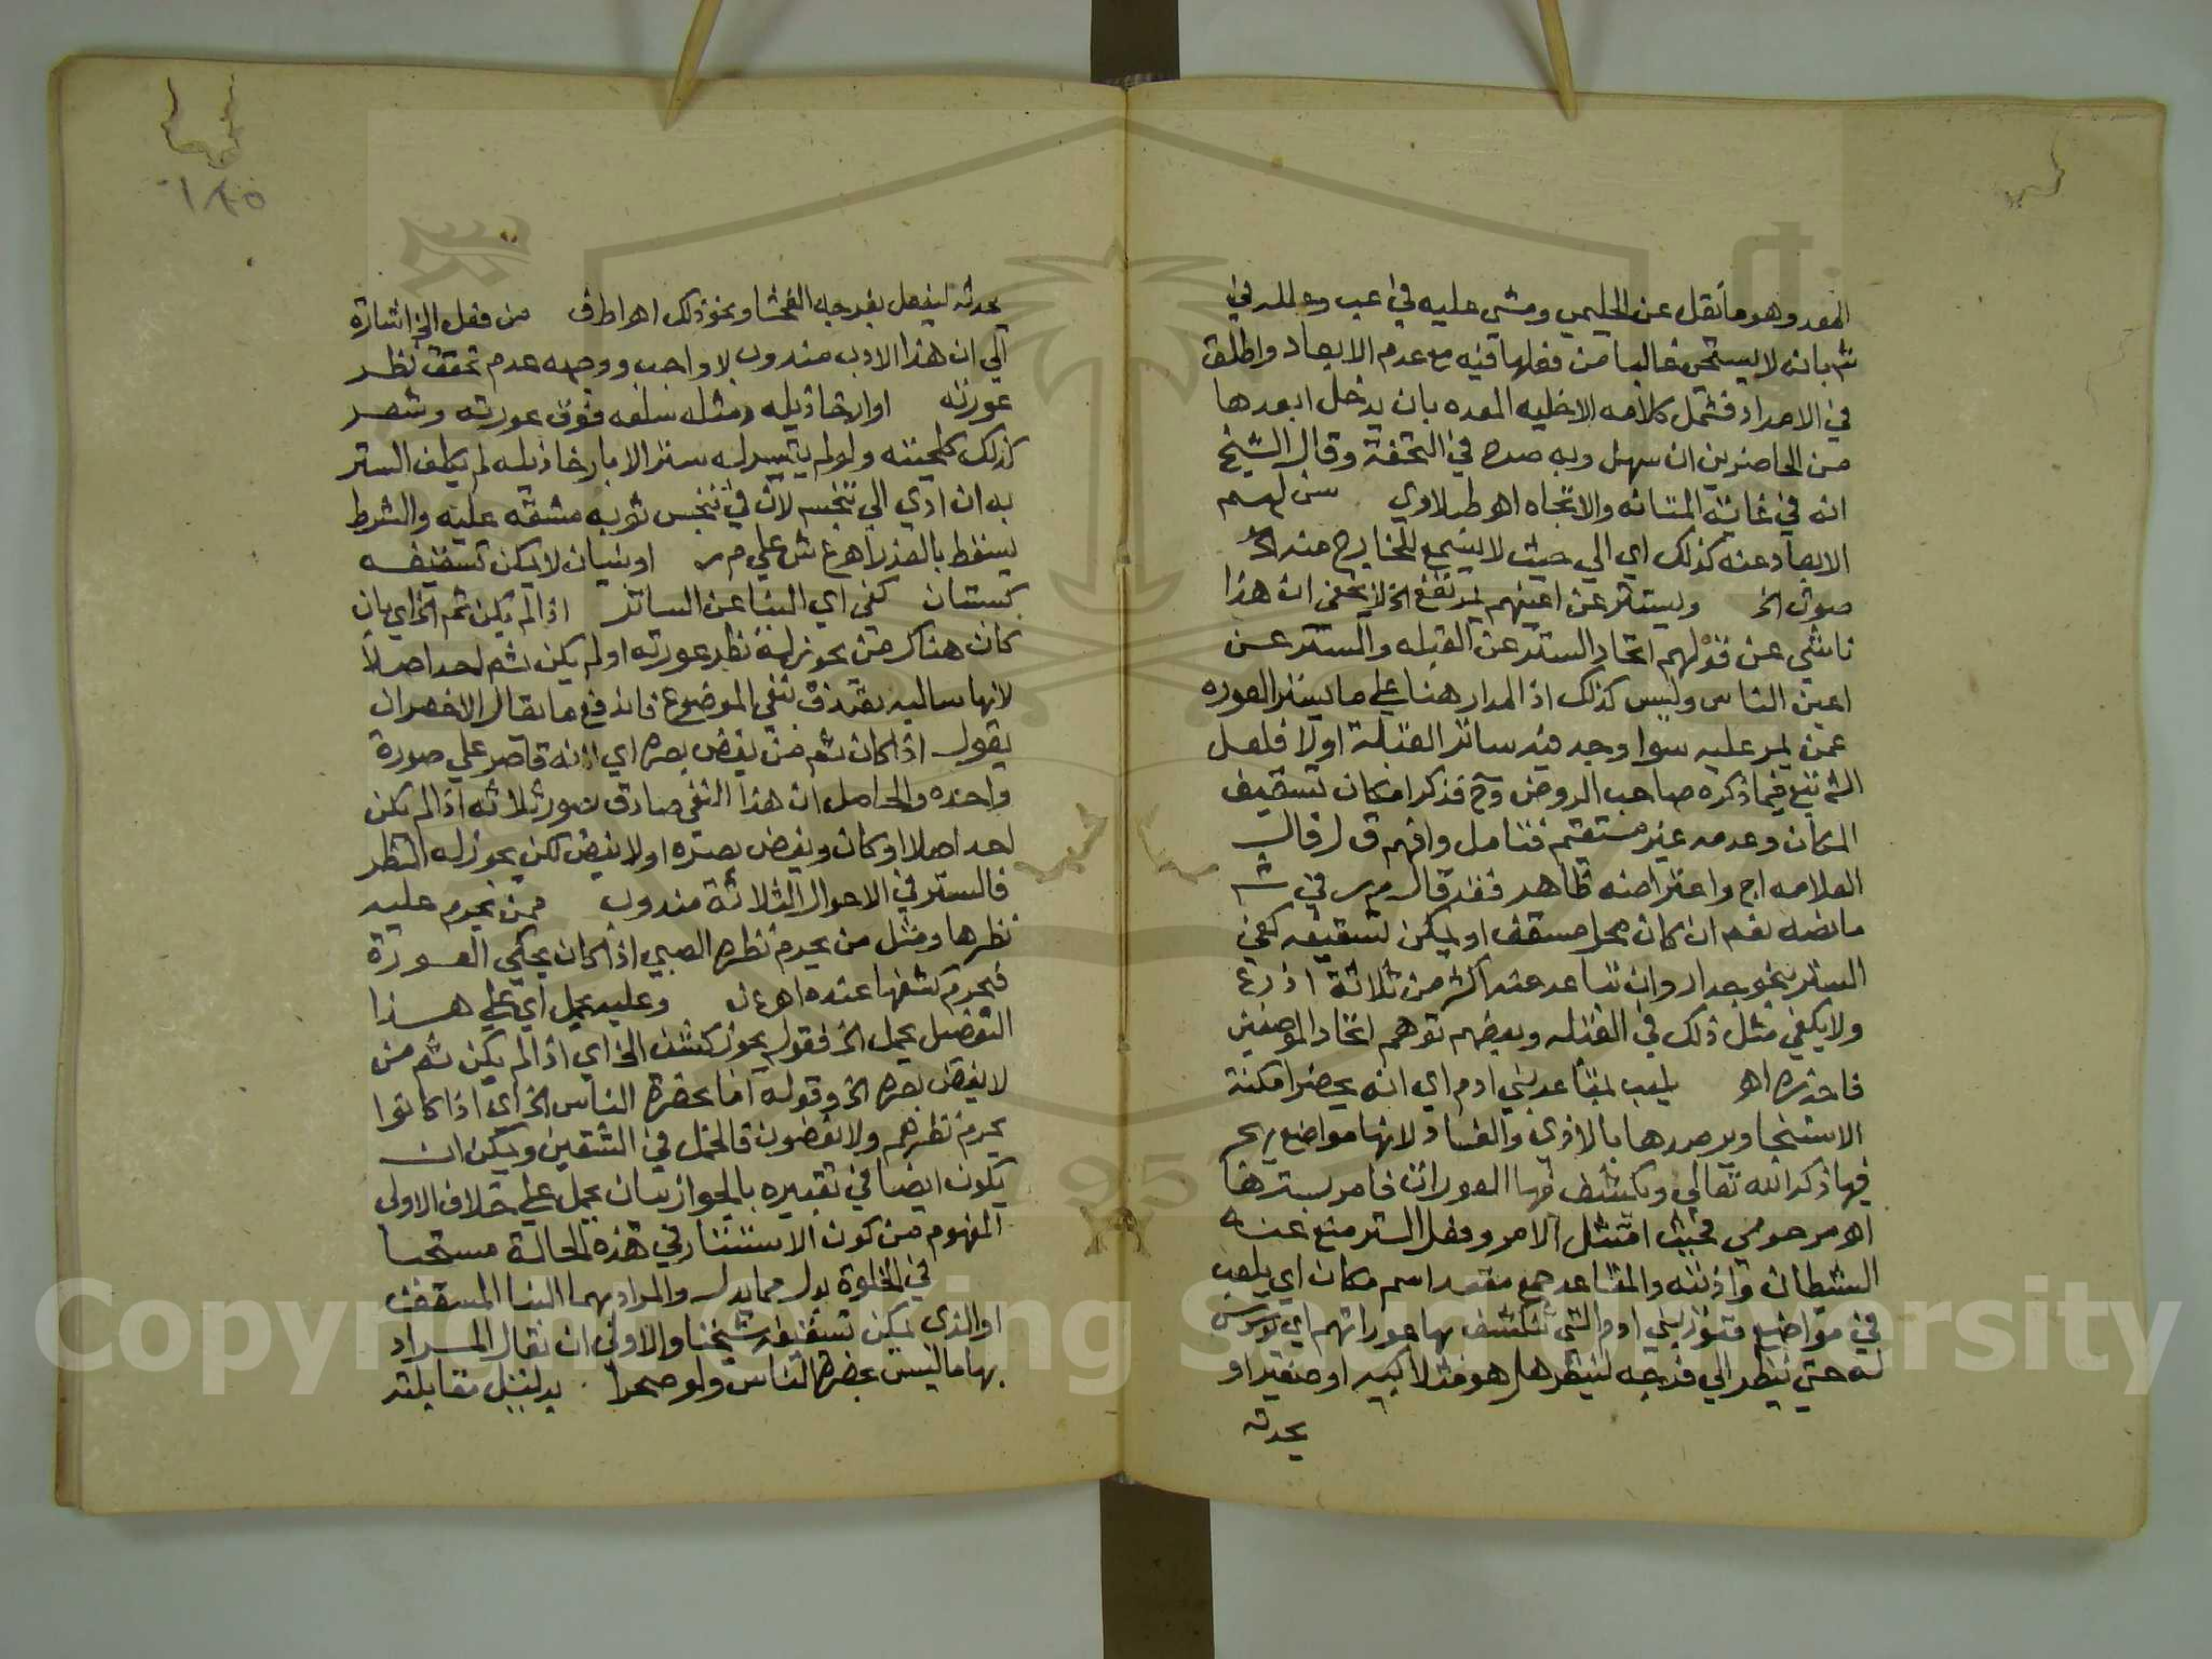 المعد وهو ما نقل عن الحليمي ومشى عليه في عب وعلله في
شم بانه لا يستحي غالبا من فعلها فيه مع عدم الابعاد واطلق
في الامداد فشمل كلامه الاخليه المعده بان يدخل ابعدها
من الحاضرين ان سهل وبه صدر في التحفة وقال الشيخ
انه في غاية المتانه والاتجاه اهو طبلاوي سن لهم
الابعاد عنه كذلك اي الي حيث لا يسمع للخارج منه
صوت الخ ويستتر عن اعينهم بمرتفع الخ لا يخفي ان هذا
ناشي عن قولهم اتحاد الستر عن القبله والستر عن
اعين الناس وليس كذلك اذ المدار هنا علي ما يستر العوره
عمن يمر عليه سوا وجد فيه ساتر القبلة اولا فلعل
الشم تبع فيما ذكره صاحب الروض وح فذكر امكان تسقيف
المكان وعدمه غير مستقيم فتامل وافهم ق ل قال
العلامه اج واعتراضه ظاهر فقد قال م ر في شم
ما نصه نعم ان كان بمحل مسقف او يمكن تسقيفه كفي
الستر بنحو جدار وان تباعد عنه اكثر من ثلاثة اذرع
ولا يكفي مثل ذلك في القبله وبعضهم توهم اتحاد الموضعين
فاحذره اهو يلعب بمقاعد بني ادم اي انه يحضر امكنة
الاستنجا ويرصدها بالاذي والفساد لانها مواضع يهجر
فيها ذكر الله تعالي وتكشف فيها العورات فامر بسترها
اهو مرحومي فحيث امتثل الامر وفعل الستر منع عنه
الشيطان واذيته والمقاعد جمع مقعد اسم مكان اي يلعب
في مواضع قعود بني ادم التي تنكشف بها عوراتهم اي يوسوس
له حتي ينظر الي فرجه لينظر هل هو مثلا كبير او صغير او
يحدثه
١٨٥
يحدثه ليفعل بفرجه الفحشا ونحو ذلك اهو اطف من فعل الخ اشارة
الي ان هذا الادب مندوب لا واجب ووجهه عدم تحقق نظر
عورته او ارخا ذيله ومثله سلعه فوق عورته وشعر
كذلك كلحيته ولو لم يتيسر له ستر الا بارخا ذيله لم يكلف الستر
به ان ادي الي تنجسه لان في تنجس ثوبه مشقة عليه والشرط
يسقط بالعذر اهو ع ش علي م ر او بنيان لا يمكن تسقيفه
كبستان كفي اي البنا عن الساتر اذا لم يكن ثم الخ اي بان
كان هناك من يحوز له نظر عورته او لم يكن ثم احد اصلا
لانها سالبه تصدق بنفي الموضوع فاندفع ما يقال الاخصر ان
يقول اذا كان ثم من يغض بصره اي لانه قاصر علي صورة
واحده والحاصل ان هذا النفي صادق بصور ثلاثه اذا لم يكن
احد اصلا او كان ويغض بصره او لا يغض لكن يحوز له النظر
فالستر في الاحوال الثلاثة مندوب ممن يحرم عليه
نظرها ومثل من يحرم نظره الصبي اذا كان يحكي العورة
فيحرم كشفها عنده اهو ع ن وعليه يحمل اي علي هذا
التفصيل يحمل الخ فقوله يحوز كشف الخ اي اذا لم يكن ثم من
لا يغض بصره الخ وقوله اما بحضرة الناس الخ اي اذا كانوا
يحرم نظرهم ولا يغضون فالحمل في الشقين ويمكن ان
يكون ايضا في تعبيره بالجواز بان يحمل علي خلاف الاولي
المفهوم من كون الاستتار في هذه الحالة مستحبا
في الخلوة بدل مما بدل والمراد بهما البنا المسقف
او الذي يمكن تسقيفه شيخنا والاولي ان يقال المراد
بها ما ليس بحضرة الناس ولو صحرا بدليل مقابلته
Copyright © King Saud University